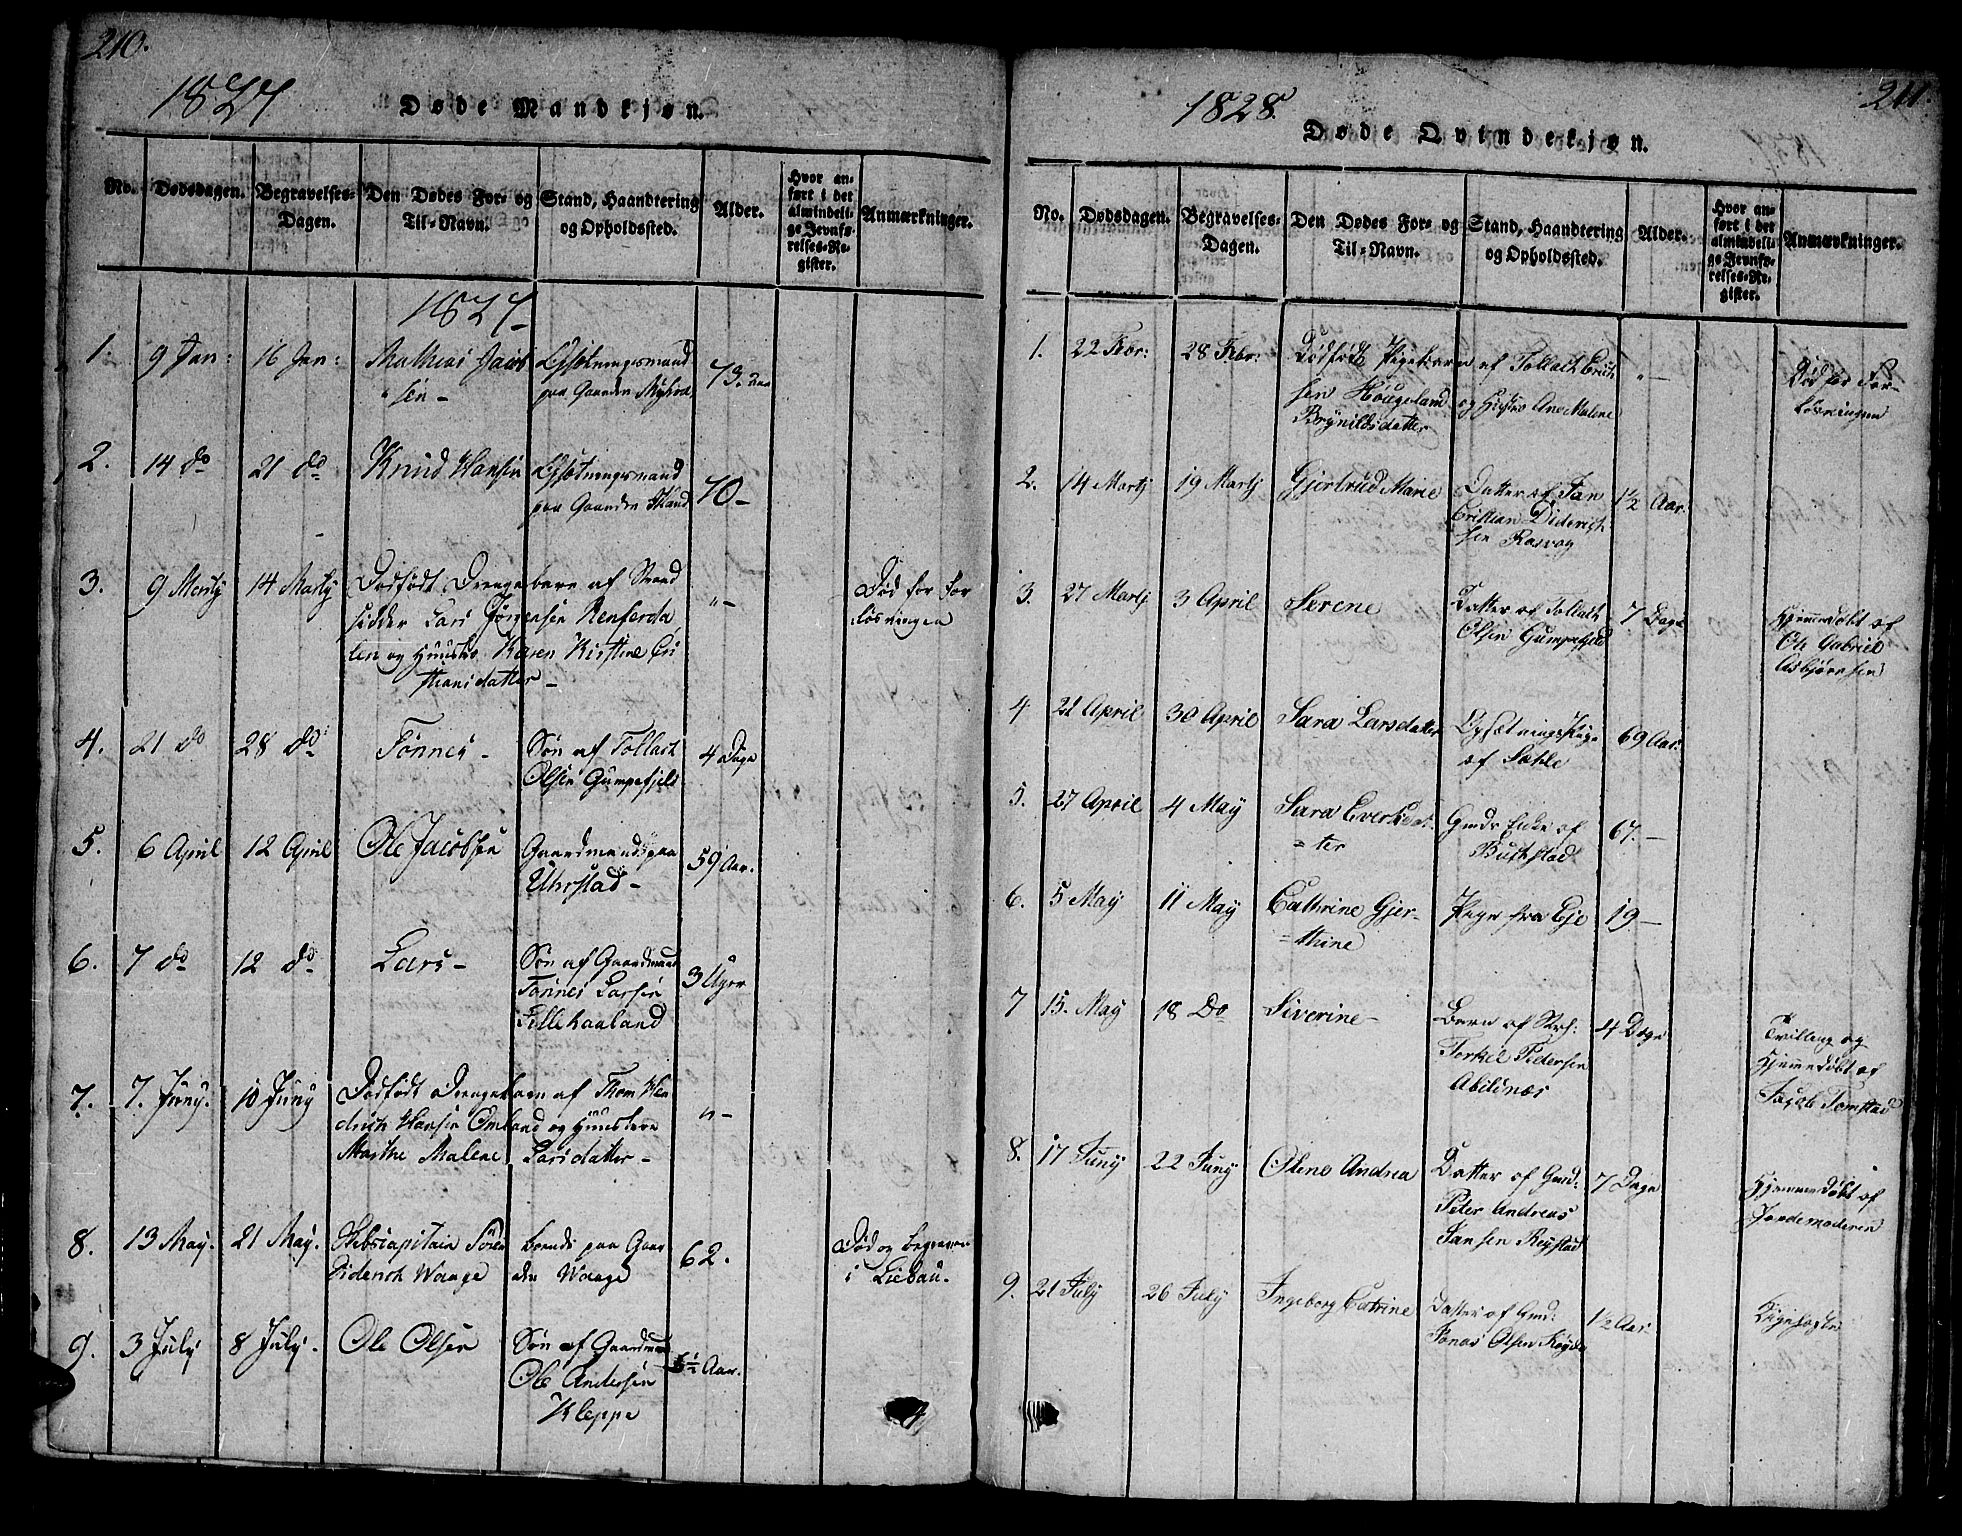 210.
1827
Døde Mandkjøn.
No.
Dødsdagen.
Begravelses-
Dagen.
Den Dødes For- og
Til-Navn.
Stand, Haandtering
og Opholdssted.
Alder.
Hvor an-
ført i det
almindeli-
ge Jevnfø-
relses-Re-
gister.
Anmærkninger.
1827
1. 9 Jan: 16 Jan: Mathias Jacob
sen - Opsidningsmand
paa Gaarden
73.
2. 14 do 21 do Knud Hansen
paa Gaarden
70 -
3. 9 Martj 14 Martj Dødfødt Drengebarn af Strand
sidder Lars Jørgensen
len og Huustro Karen Kirstine Cri
stiansdatter -
" -
Død før For
løsningen
4. 21 do 28 do Tønnes - Søn af Tollach
Olsen Gumpefjeld
4 Dage
5. 6 April 12 April Ole Jacobsen Gaardmand paa
Uhrstad -
59 Aar.
6. 7 do 12 do Lars - Søn af Gaardmand
Tønnes Larsen
Lille Haaland
3 Uger
7. 7. Juny. 10 Juny Dødfødt Drengebarn af Thom Hen
drich Hansen Omland og Huustroe
Marthe Malene Larsdatter -
" -
8. 13 May. 21 May. Sören
Diderich Waage boende paa Gaar
den Waage
62.
Død og begraven
i Liebau.
9. 3 July 8 July. Ole Olsen Søn af Gaardmand
Ole Andersen
Kleppe
Aar.
211.
1828.
Døde Qvindekjøn.
No.
Dødsdagen.
Begravelses-
Dagen.
Den Dødes For- og
Til-Navn.
Stand, Haandtering
og Opholdssted.
Alder.
Hvor an-
ført i det
almindeli-
ge Jevnfø-
relses-Re-
gister.
Anmærkninger.
1. 22 Febr: 28 Febr: Dødfødt Pigebarn af Tollach Erich
sen Hougeland og Hustro Ane Malene
Brynildsdatter
" -
Død før For-
løsningen
2. 14 Martj 19 Martj Gjertrud Marie Datter af Jan
Cristian Diderich
sen Rasvog
1½ Aar.
3. 27 Martj 3 April Serene Datter af Tollach
Olsen Gumpefjeld
7 Dage
Hjemmedøbt af
Ole Gabriel
Asbjørnsen
4 21 April 30 April Sara Larsdatter
af Sæhle
69 Aar.
5. 27 April 4 May Sara Evertsdat-
= ter Gmds Enke af
67. -
6. 5 May 11 May Cathrine Gjer-
= thine Pige fra Eje
19 -
7 15. May 18 Do Siverine - Barn af Strs:
Torkel Pedersen
Abilsnæs
4 Dage
Tvilling og
Hjemmedøbt af
Jacob Tomstad
8. 17 Juny 22 Juny Olene Andrea Datter af Gmd:
Peter Andreas
Jansen Reystad
7 Dage
Hjemmedøbt af
Jordemoderen
9. 21 July 26 July Ingeborg Catrine Datter af Gmd:
Jonas Olsen
1½ Aar.